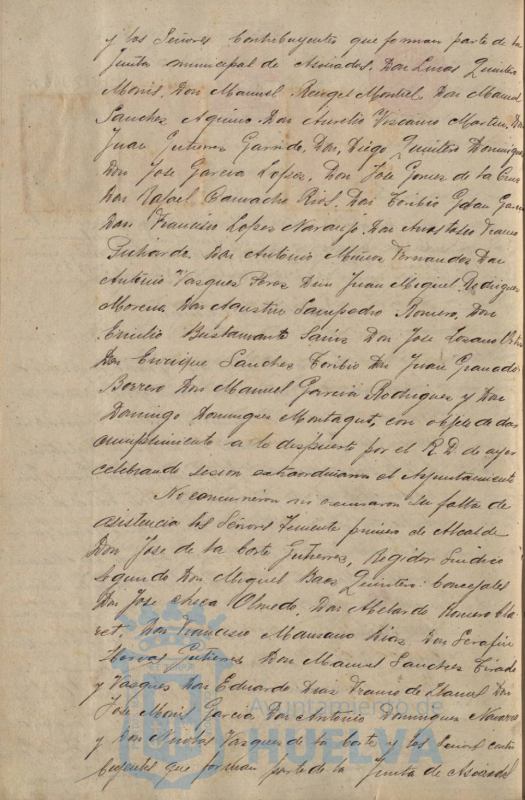 y los Señores Contribuyentes que forman parte de la
Junta municipal de Asociados. Don Lucas Quintero
Moris, Don Manuel Rengel Montiel Don Manuel
Sanchez Aquino. Don Aurelio Vizcaino Martin. Don
Juan Gutierrez Garrido, Don, Diego Quintero Dominguez
Don Jose Garcia Lopez, Don José Gomez de la Cruz
Don Rafael Camacho Rios. Don Toribio Galan Garcia
Don Francisco Lopez Naranjo. Don Anastasio Franco
Pichardo. Don Antonio Fernandez Don
Antonio Vazquez Perez Don Juan Miguel Rodriguez
Moreno, Don Agustin Sampedro Romero, Don
Emilio Bustamante Sainz Don Jose Lozano
Don Enrique Sanchez Toribio Don Juan Granado
Borrero Don Manuel Garcia Rodriguez y Don
Domingo Dominguez Montagut, con objeto de dar
cumplimiento a lo dispuesto por el R.D. de ayer
celebrando sesion extraordinaria el Ayuntamiento
No concurrieron ni escusaron su falta de
asistencia los Señores Teniente primero de Alcalde
Don Jose de la Corte Gutierrez, Regidor Sindico
Segundo Don Miguel Baez Quintero: Concejales
Don Jose Checa Olmedo, Don Abelardo Romero Cla
ret, Don Francisco Manzano Diaz Don Serafin
Gutierrez Don Manuel Sanchez Tirado
y Vazquez Don Eduardo Diaz Franco de Llanes Don
Jose Moris Garcia Don Antonio Dominguez Navarro
y Don Nicolas Vazquez de la Corte y los Señores contri
buyentes que forman parte de la Junta de Asociados
Ayuntamiento de
HUELVA